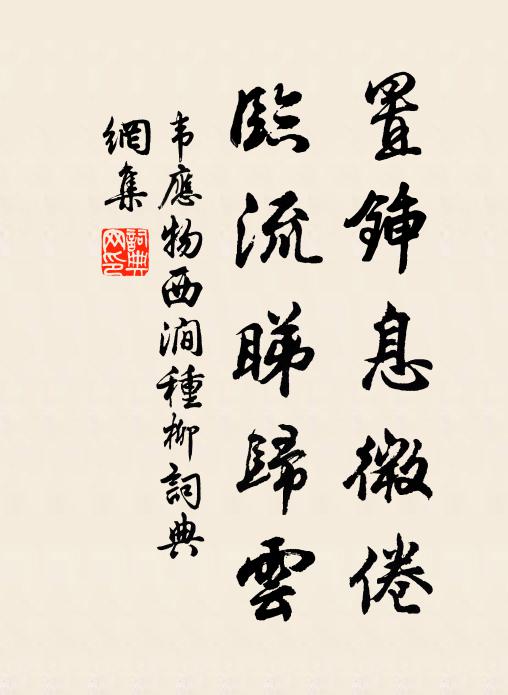 置鍤息微倦
臨流睇歸雲
韦應物西澗種柳詞典
網集
詞典網印